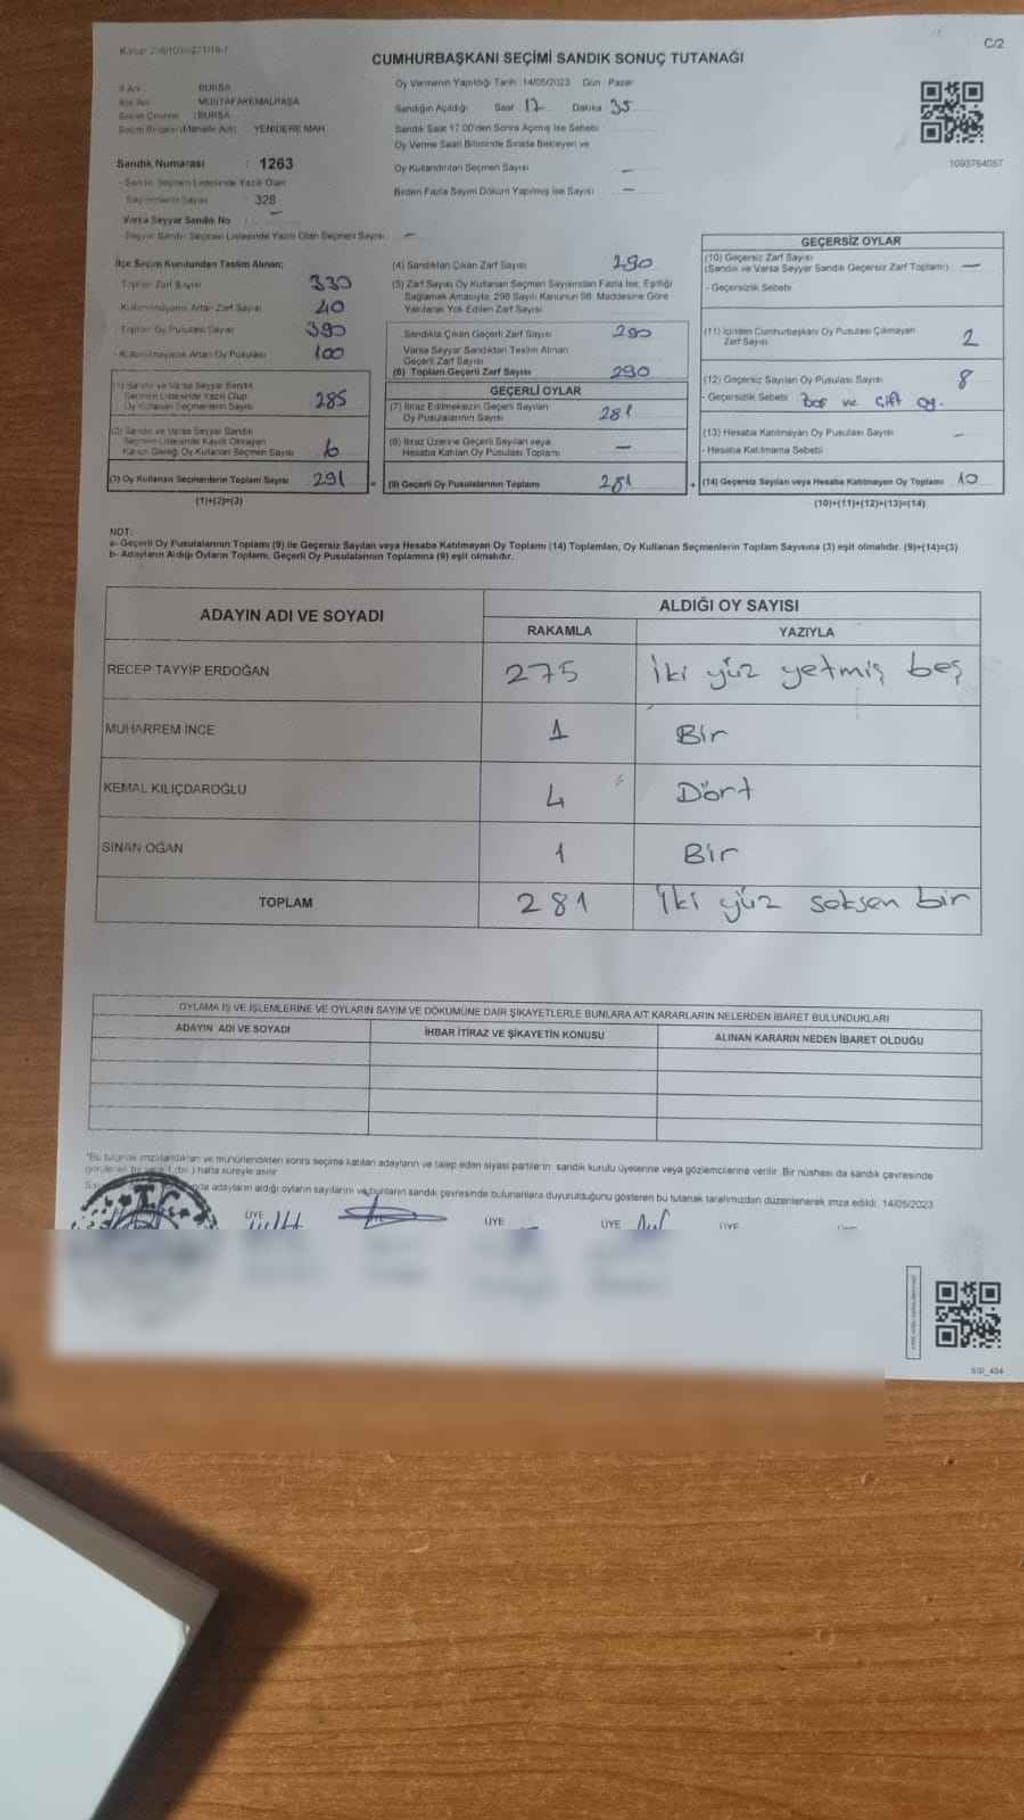 C/2
CUMHURBAŞKANI SEÇİMİ SANDIK SONUÇ TUTANAĞI
Oy Vermenin Yapıldığı Tarih : 14/05/2023 Gün : Pazar
BURSA
MUSTAFAKEMALPAŞA
BURSA
YENİDERE MAH.
Sandığın Açıldığı Saat 17 Dakika 35
Sandık Saat 17.00'den Sonra Açılmış İse Sebebi
Oy Verme Saati Bitiminde Sırada Bekleyen ve
Oy Kullandırılan Seçmen Sayısı –
Birden Fazla Sayım Döküm Yapılmış İse Sayısı –
1093764057
Sandık Numarası : 1263
Sandık Seçmen Listesinde Yazılı Olan
Seçmenlerin Sayısı : 328
Varsa Seyyar Sandık No : –
Seyyar Sandık Seçmen Listesinde Yazılı Olan Seçmen Sayısı : –
İlçe Seçim Kurulundan Teslim Alınan;
Toplam Zarf Sayısı 330
Kullanılmayarak Artan Zarf Sayısı 40
Toplam Oy Pusulası Sayısı 390
- Kullanılmayarak Artan Oy Pusulası 100
(1) Sandık ve Varsa Seyyar Sandık
Seçmen Listesinde Yazılı Olup
Oy Kullanan Seçmenlerin Sayısı 285
(2) Sandık ve Varsa Seyyar Sandık
Seçmen Listesinde Kayıtlı Olmayan
Kanun Gereği Oy Kullanan Seçmen Sayısı 6
(3) Oy Kullanan Seçmenlerin Toplam Sayısı 291
(1)+(2)=(3)
(4) Sandıktan Çıkan Zarf Sayısı 290
(5) Zarf Sayısı Oy Kullanan Seçmen Sayısından Fazla İse, Eşitliği
Sağlamak Amacıyla, 298 Sayılı Kanunun 98. Maddesine Göre
Yakılarak Yok Edilen Zarf Sayısı
Sandıkta Çıkan Geçerli Zarf Sayısı 290
Varsa Seyyar Sandıktan Teslim Alınan
Geçerli Zarf Sayısı
(6) Toplam Geçerli Zarf Sayısı 290
GEÇERLİ OYLAR
(7) İtiraz Edilmeksizin Geçerli Sayılan
Oy Pusulalarının Sayısı 281
(8) İtiraz Üzerine Geçerli Sayılan veya
Hesaba Katılan Oy Pusulası Toplamı –
(9) Geçerli Oy Pusulalarının Toplamı 281
GEÇERSİZ OYLAR
(10) Geçersiz Zarf Sayısı
(Sandık ve Varsa Seyyar Sandık Geçersiz Zarf Toplamı) –
- Geçersizlik Sebebi
(11) İçinden Cumhurbaşkanı Oy Pusulası Çıkmayan
Zarf Sayısı 2
(12) Geçersiz Sayılan Oy Pusulası Sayısı 8
- Geçersizlik Sebebi Boş ve Çift oy.
(13) Hesaba Katılmayan Oy Pusulası Sayısı –
- Hesaba Katılmama Sebebi
(14) Geçersiz Sayılan veya Hesaba Katılmayan Oy Toplamı 10
(10)+(11)+(12)+(13)=(14)
NOT:
a- Geçerli Oy Pusulalarının Toplamı (9) ile Geçersiz Sayılan veya Hesaba Katılmayan Oy Toplamı (14) Toplamları, Oy Kullanan Seçmenlerin Toplam Sayısına (3) eşit olmalıdır. (9)+(14)=(3)
b- Adayların Aldığı Oyların Toplamı, Geçerli Oy Pusulalarının Toplamına (9) eşit olmalıdır.
ADAYIN ADI VE SOYADI
ALDIĞI OY SAYISI
RAKAMLA YAZIYLA
RECEP TAYYİP ERDOĞAN 275 İki yüz yetmiş beş
MUHARREM İNCE 1 Bir
KEMAL KILIÇDAROĞLU 4 Dört
SİNAN OĞAN 1 Bir
TOPLAM 281 İki yüz seksen bir
OYLAMA İŞ VE İŞLEMLERİNE VE OYLARIN SAYIM VE DÖKÜMÜNE DAİR ŞİKAYETLERLE BUNLARA AİT KARARLARIN NELERDEN İBARET BULUNDUKLARI
ADAYIN ADI VE SOYADI İHBAR İTİRAZ VE ŞİKAYETİN KONUSU ALINAN KARARIN NEDEN İBARET OLDUĞU
*Bu tutanak imzalandıktan ve mühürlendikten sonra seçime katılan adayların ve talep eden siyasi partilerin sandık kurulu üyelerine veya gözlemcilerine verilir. Bir nüshası da sandık çevresinde
hafta süreyle asılır.
adayların aldığı oyların sayılarını ve bunların sandık çevresinde bulunanlara duyurulduğunu gösteren bu tutanak tarafımızdan düzenlenerek imza edildi. 14/05/2023
ÜYE ÜYE ÜYE ÜYE